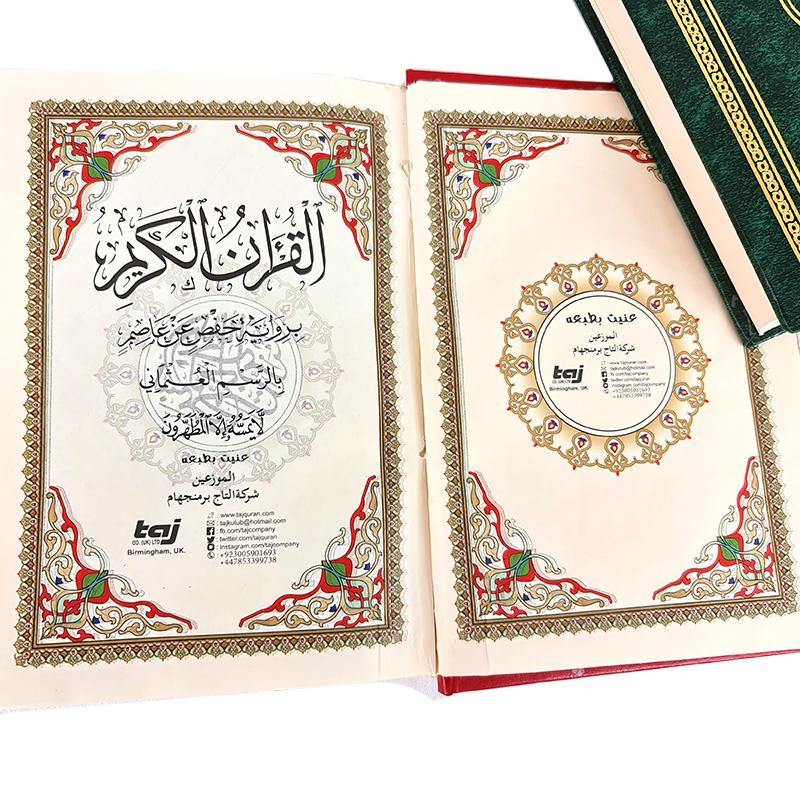 ٱلْقُرْءَانُ ٱلْكَرِيمُ
بِرِوَايَةِ حَفْصٍ عَنْ عَاصِمٍ
بِالرَّسْمِ الْعُثْمَانِي
لَّا يَمَسُّهُ إِلَّا ٱلْمُطَهَّرُونَ
عنيت بطبعه
الموزعين
شركة التاج برمنجهام
taj
CO. (UK) LTD
Birmingham, UK.
: www.tajquran.com
: tajkutub@hotmail.com
: fb.com/tajcompany
: twitter.com/tajquran
: instagram.com/tajcompany
: +923005901693
+447853399738
عنيت بطبعه
الموزعين
شركة التاج برمنجهام
taj
CO. (UK) LTD
Birmingham, UK.
: www.tajquran.com
: tajkutub@hotmail.com
: fb.com/tajcompany
: twitter.com/tajquran
: instagram.com/tajcompany
: +923005901693
+447853399738